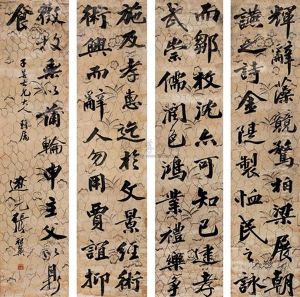 輝辭藻競骛柏梁展朝
讌之詩金隄製恤民之詠
而鄒枚沈亦可知已逮孝
武崇儒潤色鴻業禮樂爭
施及孝惠迄於文景經術
興而辭人勿用賈誼抑
徵枚乘以蒲輪申主父以鼎
食
七兄大人雅屬
張